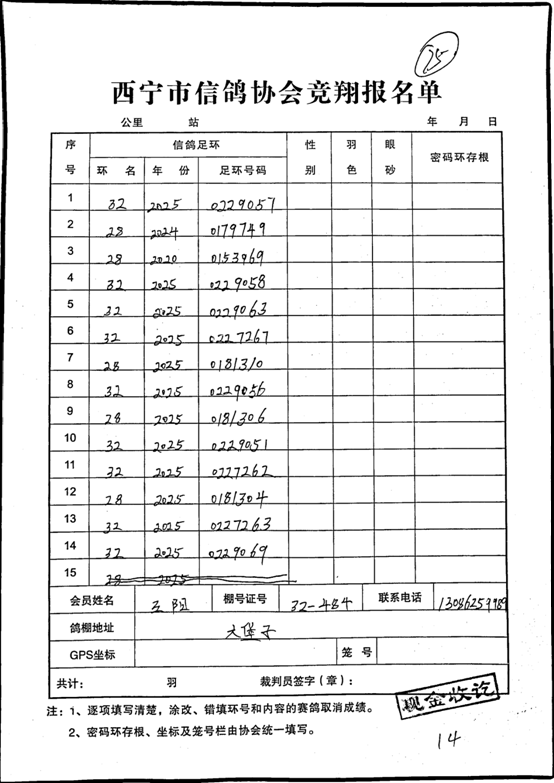 25
西宁市信鸽协会竞翔报名单
公里 站 年 月 日
序号 信鸽足环 性别 羽色 眼砂 密码环存根
环名 年份 足环号码
1 32 2025 0229057
2 28 2024 0179749
3 28 2020 0153969
4 32 2025 0229058
5 32 2025 0229063
6 32 2025 0227267
7 28 2025 0181310
8 32 2025 0229056
9 28 2025 0181306
10 32 2025 0229051
11 32 2025 0227262
12 28 2025 0181304
13 32 2025 0227263
14 32 2025 0229069
15 28 2025
会员姓名 王阳 棚号证号 32-484 联系电话 13086259989
鸽棚地址 大堡子
GPS坐标 笼号
共计: 羽 裁判员签字(章):
现金收讫
注:1、逐项填写清楚,涂改、错填环号和内容的赛鸽取消成绩。
2、密码环存根、坐标及笼号栏由协会统一填写。
14